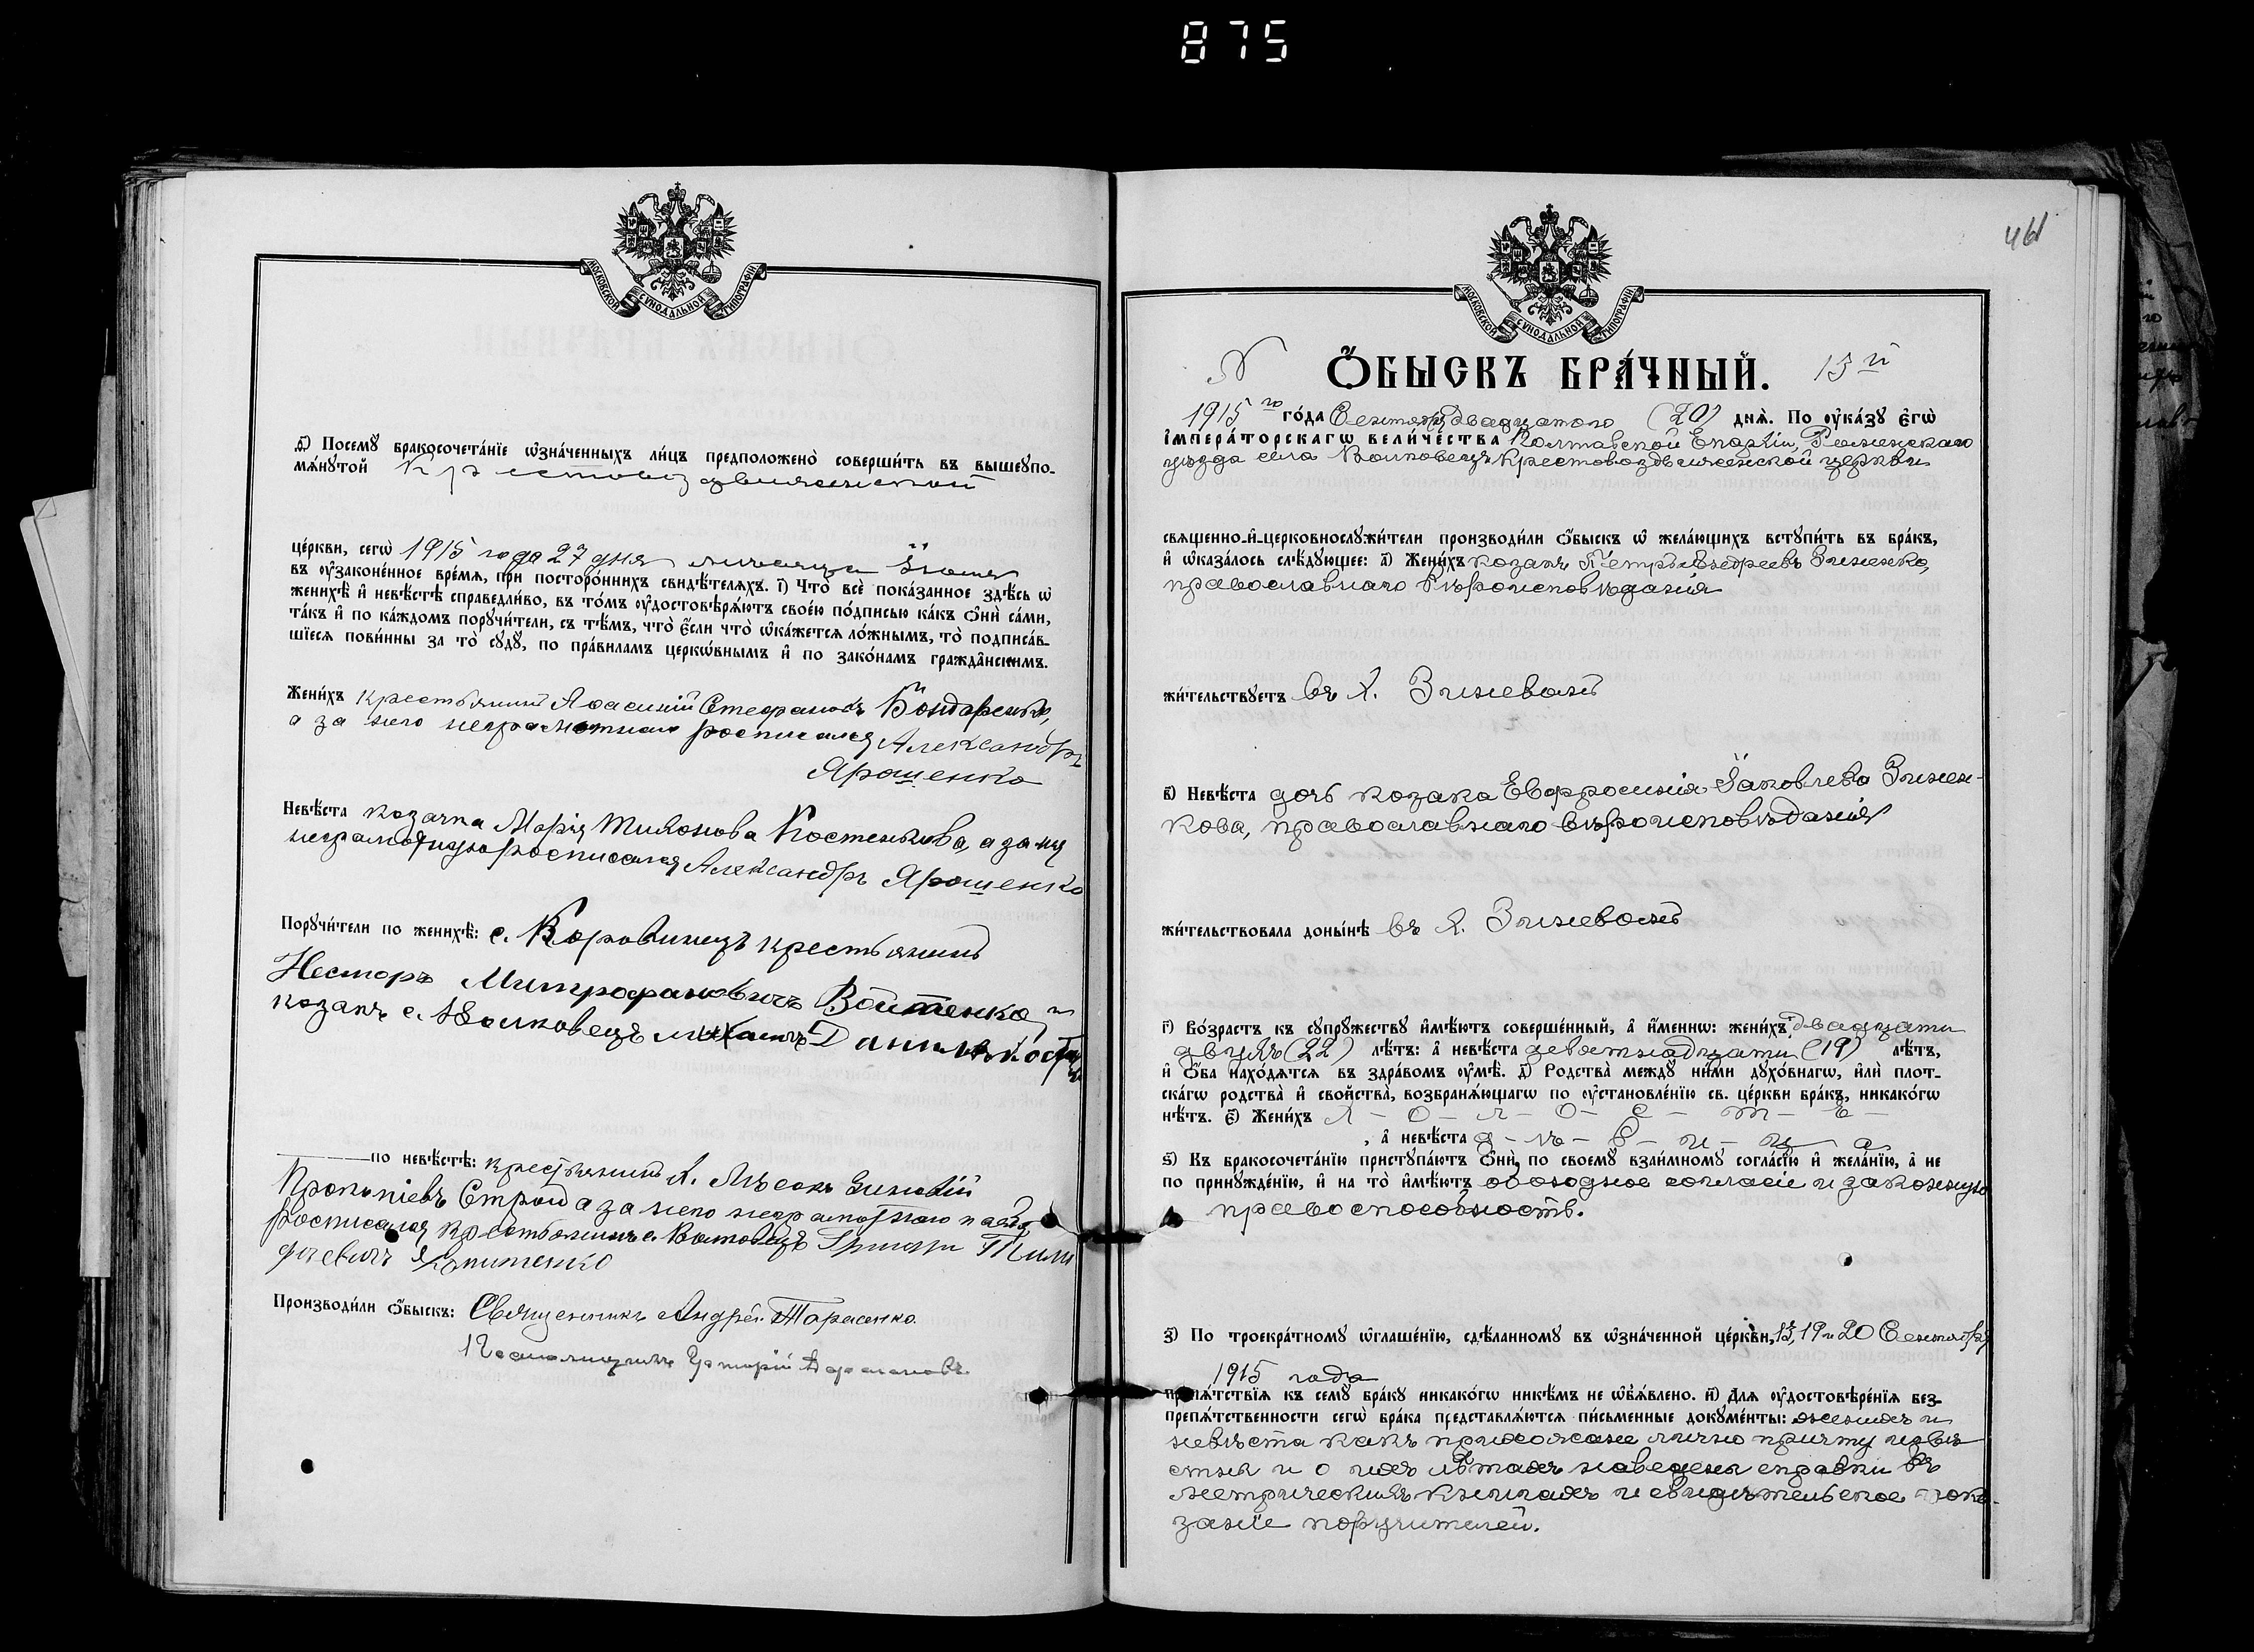 875
МОСКОВСКОЙ СѴНОДАЛЬНОЙ ТИПОГРАФІИ
д҃) Посемꙋ̀ бракосочета́нїе ѡ҆зна́ченныхъ ли́цъ предположено̀ соверши́ть въ вышеꙋпо-
мѧ́нꙋтой Крестовоздвиженской
це́ркви, сегѡ̀ 1915 года 27 дня мѣсяца Іюня
въ ᲂу҆законе́нное вре́мѧ, при посторо́ннихъ свидѣ́телѧхъ. і҃) Что̀ всѐ пока́занное здѣ́сь ѡ҆
женихѣ̀ и҆ невѣ́стѣ справедли́во, въ то́мъ ᲂу҆достовѣрѧ́ютъ свое́ю по́дписью ка́къ ѻ҆нѝ са́ми,
та́къ и҆ по ка́ждомъ порꙋчи́тели, съ тѣ́мъ, что̀ є҆́сли что̀ ѡ҆ка́жетсѧ ло́жнымъ, то̀ подписа́в-
шїесѧ пови́нны за то̀ сꙋдꙋ̀, по пра́виламъ церкѡ́внымъ и҆ по зако́намъ гражда́нскимъ.
Жени́хъ крестьянинъ Аѳасій Стефановъ Бондаренко,
а за него неграмотнаго росписался Александръ
Ярошенко
Невѣ́ста козачка Марія Тихонова Костенкова, а за нея
неграмотную росписался Александръ Ярошенко
Порꙋчи́тели по женихѣ̀: с. Коровинецъ крестьянинъ
Несторъ Митрофановичъ Войтенко и
козакъ с. Волковецъ Данилъ
по невѣ́стѣ: крестьянинъ х. Лѣсокъ Зиновій
Прокопіевъ а за него неграмотнаго
росписался крестьянинъ с. Волковецъ Григорій
Производи́ли ѻ҆́быскъ: Священникъ Андрей Тарасенко.
Псаломщикъ
461
МОСКОВСКОЙ СѴНОДАЛЬНОЙ ТИПОГРАФІИ
N ѺБЫСКЪ БРА́ЧНЫЙ. 13й
1915го го́да Сентября двадцатого (20) днѧ̀. По ᲂу҆ка́зꙋ є҆гѡ̀
і҆мпера́торскагѡ вели́чества Полтавской Епархіи, Роменскаго
уѣзда села Волковецъ Крестовоздвиженской церкви
свѧщенно-и҆-церковнослꙋжи́тели производи́ли ѻ҆́быскъ ѡ҆ жела́ющихъ встꙋпи́ть въ бра́къ,
и҆ ѡ҆каза́лось слѣ́дꙋющее: а҃) Жени́хъ козакъ Петръ Андреевъ Зиненко,
православнаго вѣроисповѣданія
жи́тельствꙋетъ въ х. Зиневомъ
в҃) Невѣ́ста дочь козака Евфросинія Іаковлева Зинен-
кова, православнаго вѣроисповѣданія
жи́тельствовала доны́нѣ въ х. Зиневомъ
г҃) Во́зрастъ къ сꙋпрꙋ́жествꙋ и҆мѣ́ютъ соверше́нный, а҆ и҆́меннѡ: жени́хъ двадцати
двухъ (22) лѣ́тъ: а҆ невѣ́ста девятнадцати (19) лѣ́тъ,
и҆ ѻ҆́ба нахо́дѧтсѧ въ здра́вомъ ᲂу҆мѣ̀. д҃) Родства̀ междꙋ̀ ни́ми дꙋхо́внагѡ, и҆лѝ плот-
ска́гѡ родства̀ и҆ сво́йства, возбранѧ́ющагѡ по ᲂу҆становле́нїю св. це́ркви бра́къ, никако́гѡ
нѣ́тъ. є҃) Жени́хъ х - о - л - о - с - т - ъ -
, а҆ невѣ́ста д - ѣ - в - и - ц - а
ѕ҃) Къ бракосочета́нїю пристꙋпа́ютъ ѻ҆нѝ, по своемꙋ̀ взаи́мномꙋ согла́сїю и҆ жела́нїю, а҆ не
по принꙋжде́нїю, и҆ на то̀ и҆мѣ́ютъ обоюдное согласіе и законную
правоспособность.
з҃) По троекра́тномꙋ ѡ҆глаше́нїю, сдѣ́ланномꙋ въ ѡ҆зна́ченной це́ркви, 13, 19 и 20 Сентября
1915 года
препѧ́тствїѧ къ семꙋ̀ бра́кꙋ никако́гѡ никѣ́мъ не ѡ҆б̾ѧ́влено. и҃) Длѧ ᲂу҆достовѣре́нїѧ без-
препѧ́тственности сегѡ̀ бра́ка представлѧ́ютсѧ пи́сьменные докꙋме́нты: женихъ и
невѣста какъ прихожане лично причту извѣ
стны и о ихъ лѣтахъ наведены справки въ
метрическихъ книгахъ и свидѣтельское пока-
заніе поручителей.